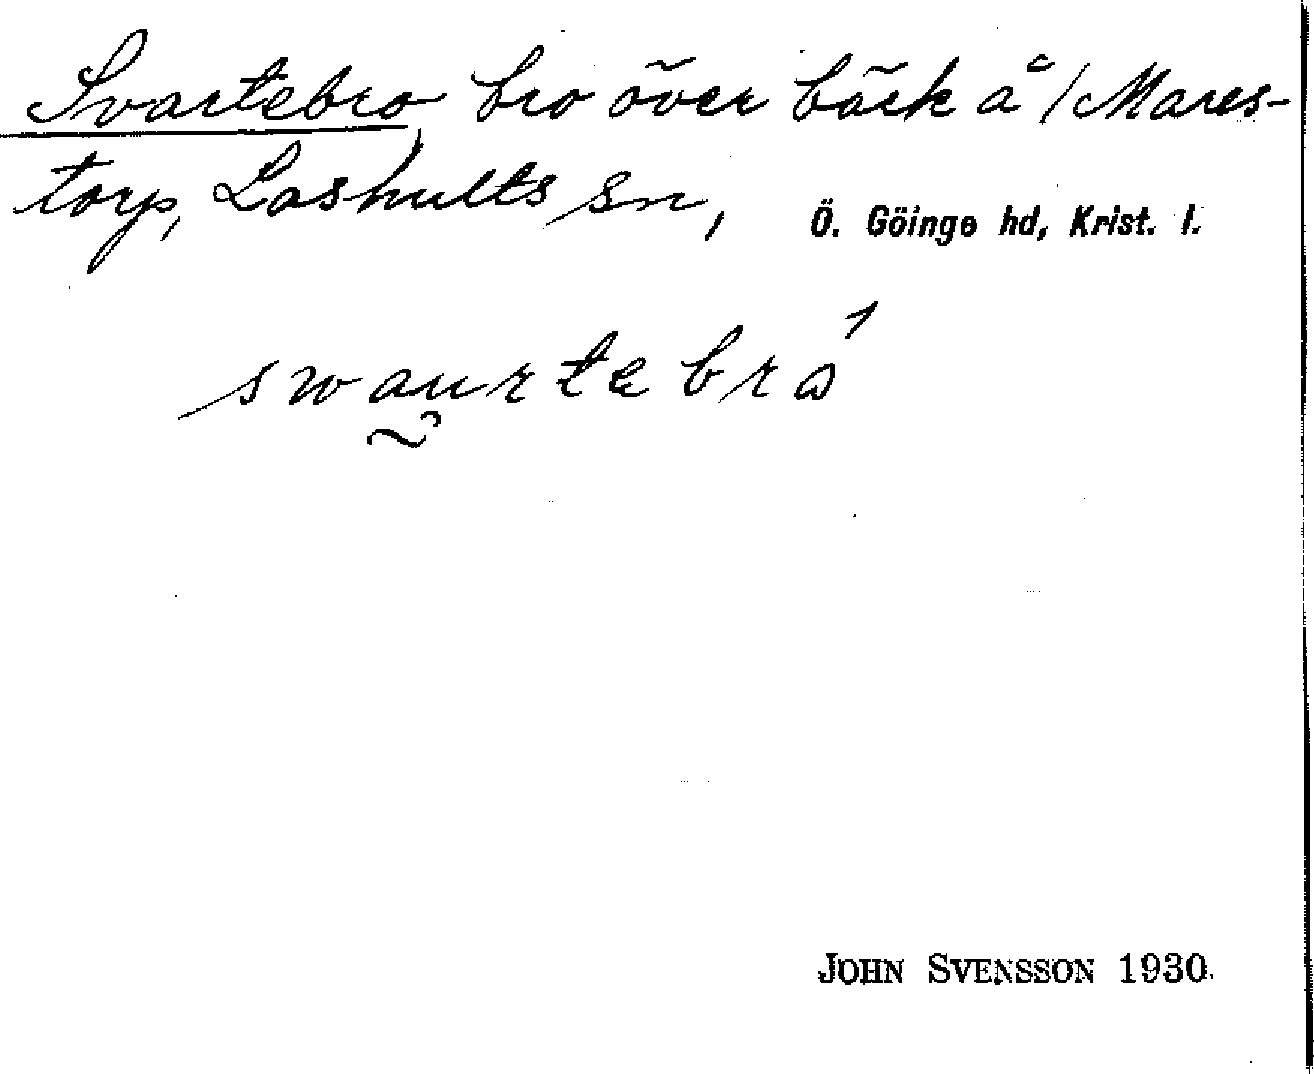 Svartebro, bro över bäck å /Mares-
torp, Loshults sn, Ö. Göinge hd, Krist. l.
swaurtebro
JOHN SVENSSON 1930.